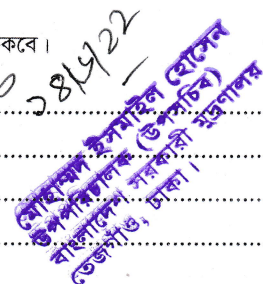 কবে।
মোহাম্মদ ইসমাইল হোসেন
উপপরিচালক (উপসচিব)
বাংলাদেশ সরকারী মুদ্রণালয়
তেজগাঁও, ঢাকা।